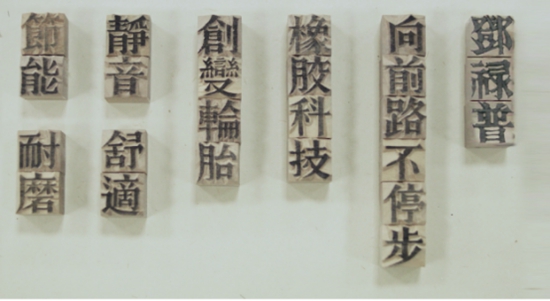 鄧祿普
向前路不停步
橡膠科技
創變輪胎
靜音
舒適
節能
耐磨